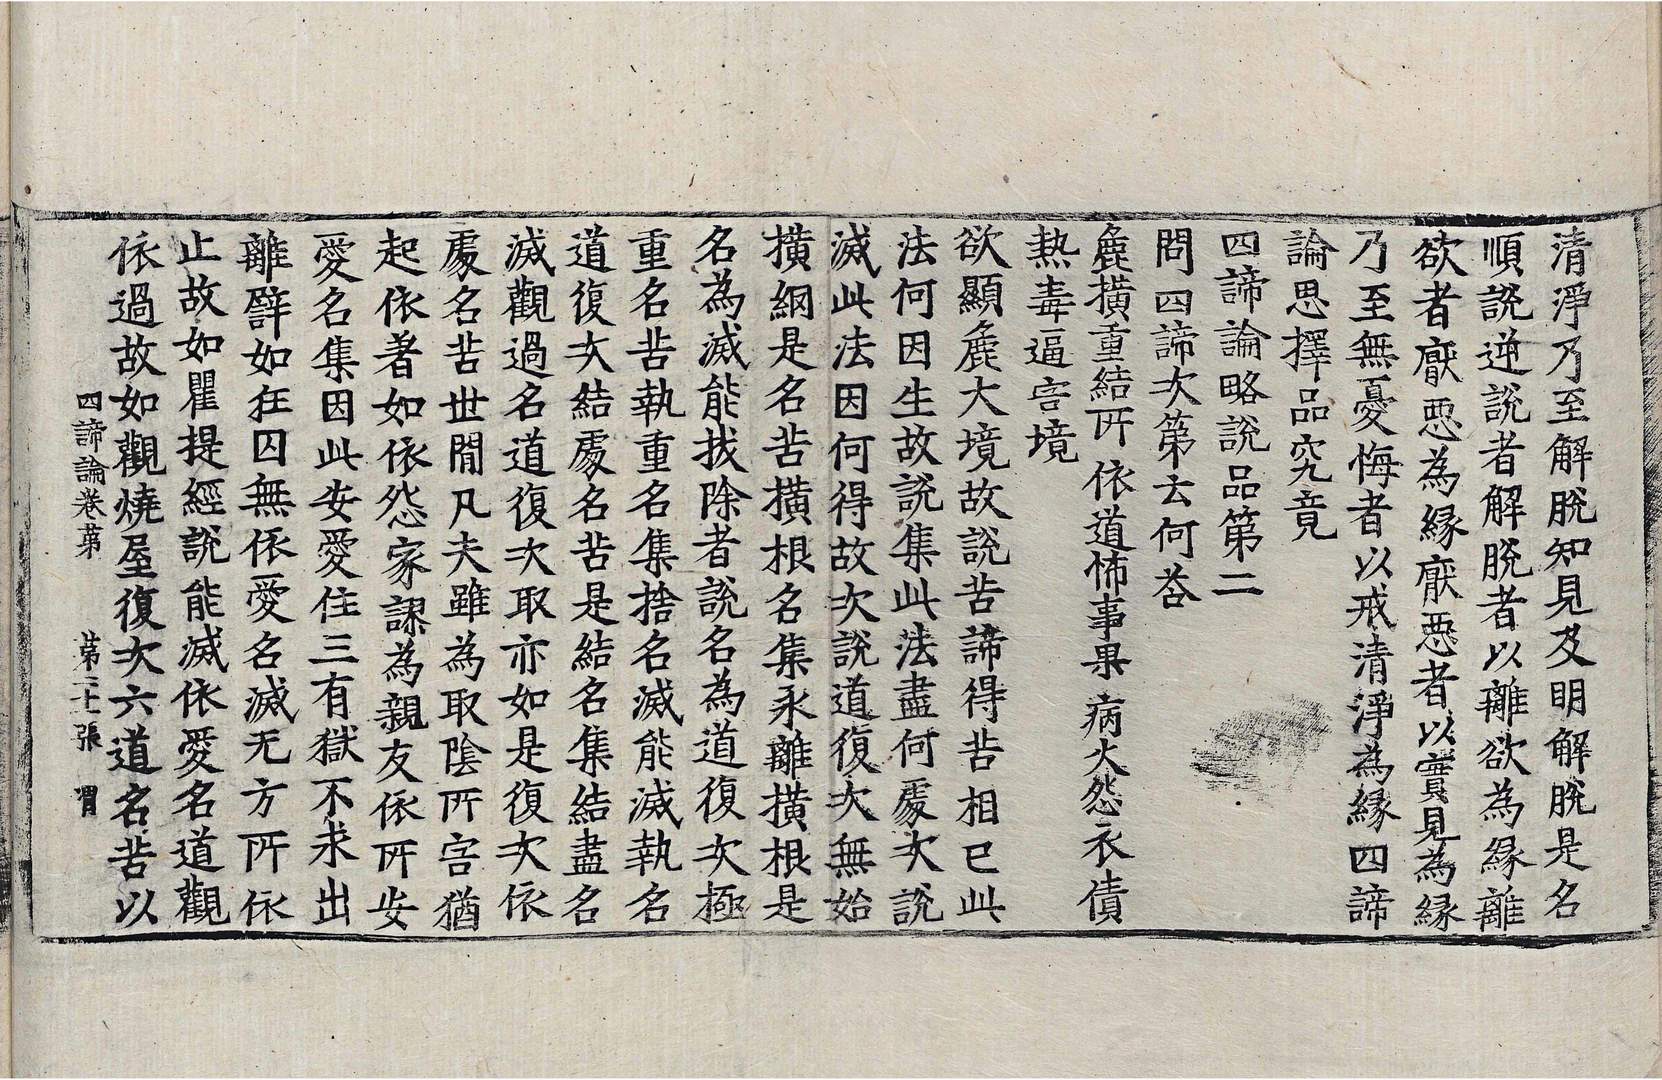 清淨乃至解脫知見及明解脫是名
順說逆說者解脫者以離欲為緣離
欲者猒惡為緣猒惡者以實見為緣
乃至無憂悔者以戒清淨為緣四諦
論思擇品究竟
四諦論略說品第二
問四諦次第云何荅
麁擴重結所依道怖事果病火怨衣債
熱毒逼害境
欲顯麁大境故說苦諦得苦相已此
法何因生故說集此法盡何處次說
滅此法因何得故次說道復次無始
擴網是名苦擴根名集永離擴根是
名為滅能拔除者說名為道復次極
重名苦執重名集捨名滅能滅執名
道復次結處名苦是結名集結盡名
滅觀過名道復次取亦如是復次依
處名苦世間凡夫雖為取陰所害猶
起依著如依怨家謬為親友依所安
愛名集因此安愛住三有獄不求出
離譬如狂囚無依愛名滅无方所依
止故如瞿提經說能滅依愛名道觀
依過故如觀燒屋復次六道名苦以
四諦論卷第一 第二十張 謂